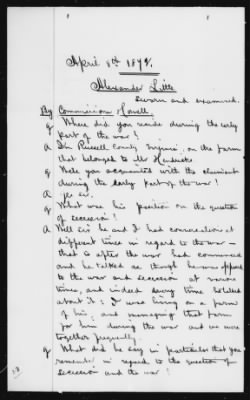 April 8th 1879.
Alexander Little
Sworn and examined.
By Commissioner Howell.
Q Where did you reside during the early
part of the war?
A In Russell County Virginia, on the farm
that belonged to Mr Hendricks
Q Were you acquainted with the claimant
during the early part of the war?
A Yes sir.
Q What was his position on the question
of secession?
A Well sir he and I had conversations at
different times in regard to the war —
that is after the war had commenced
and he talked as though he was opposed
to the war and secession at various
times, and indeed every time he talked
about it; I was living on a farm
of his, and managing that farm
for him during the war and we were
together frequently.
Q What did he say in particular that you
remember in regard to the question of
secession and the war?